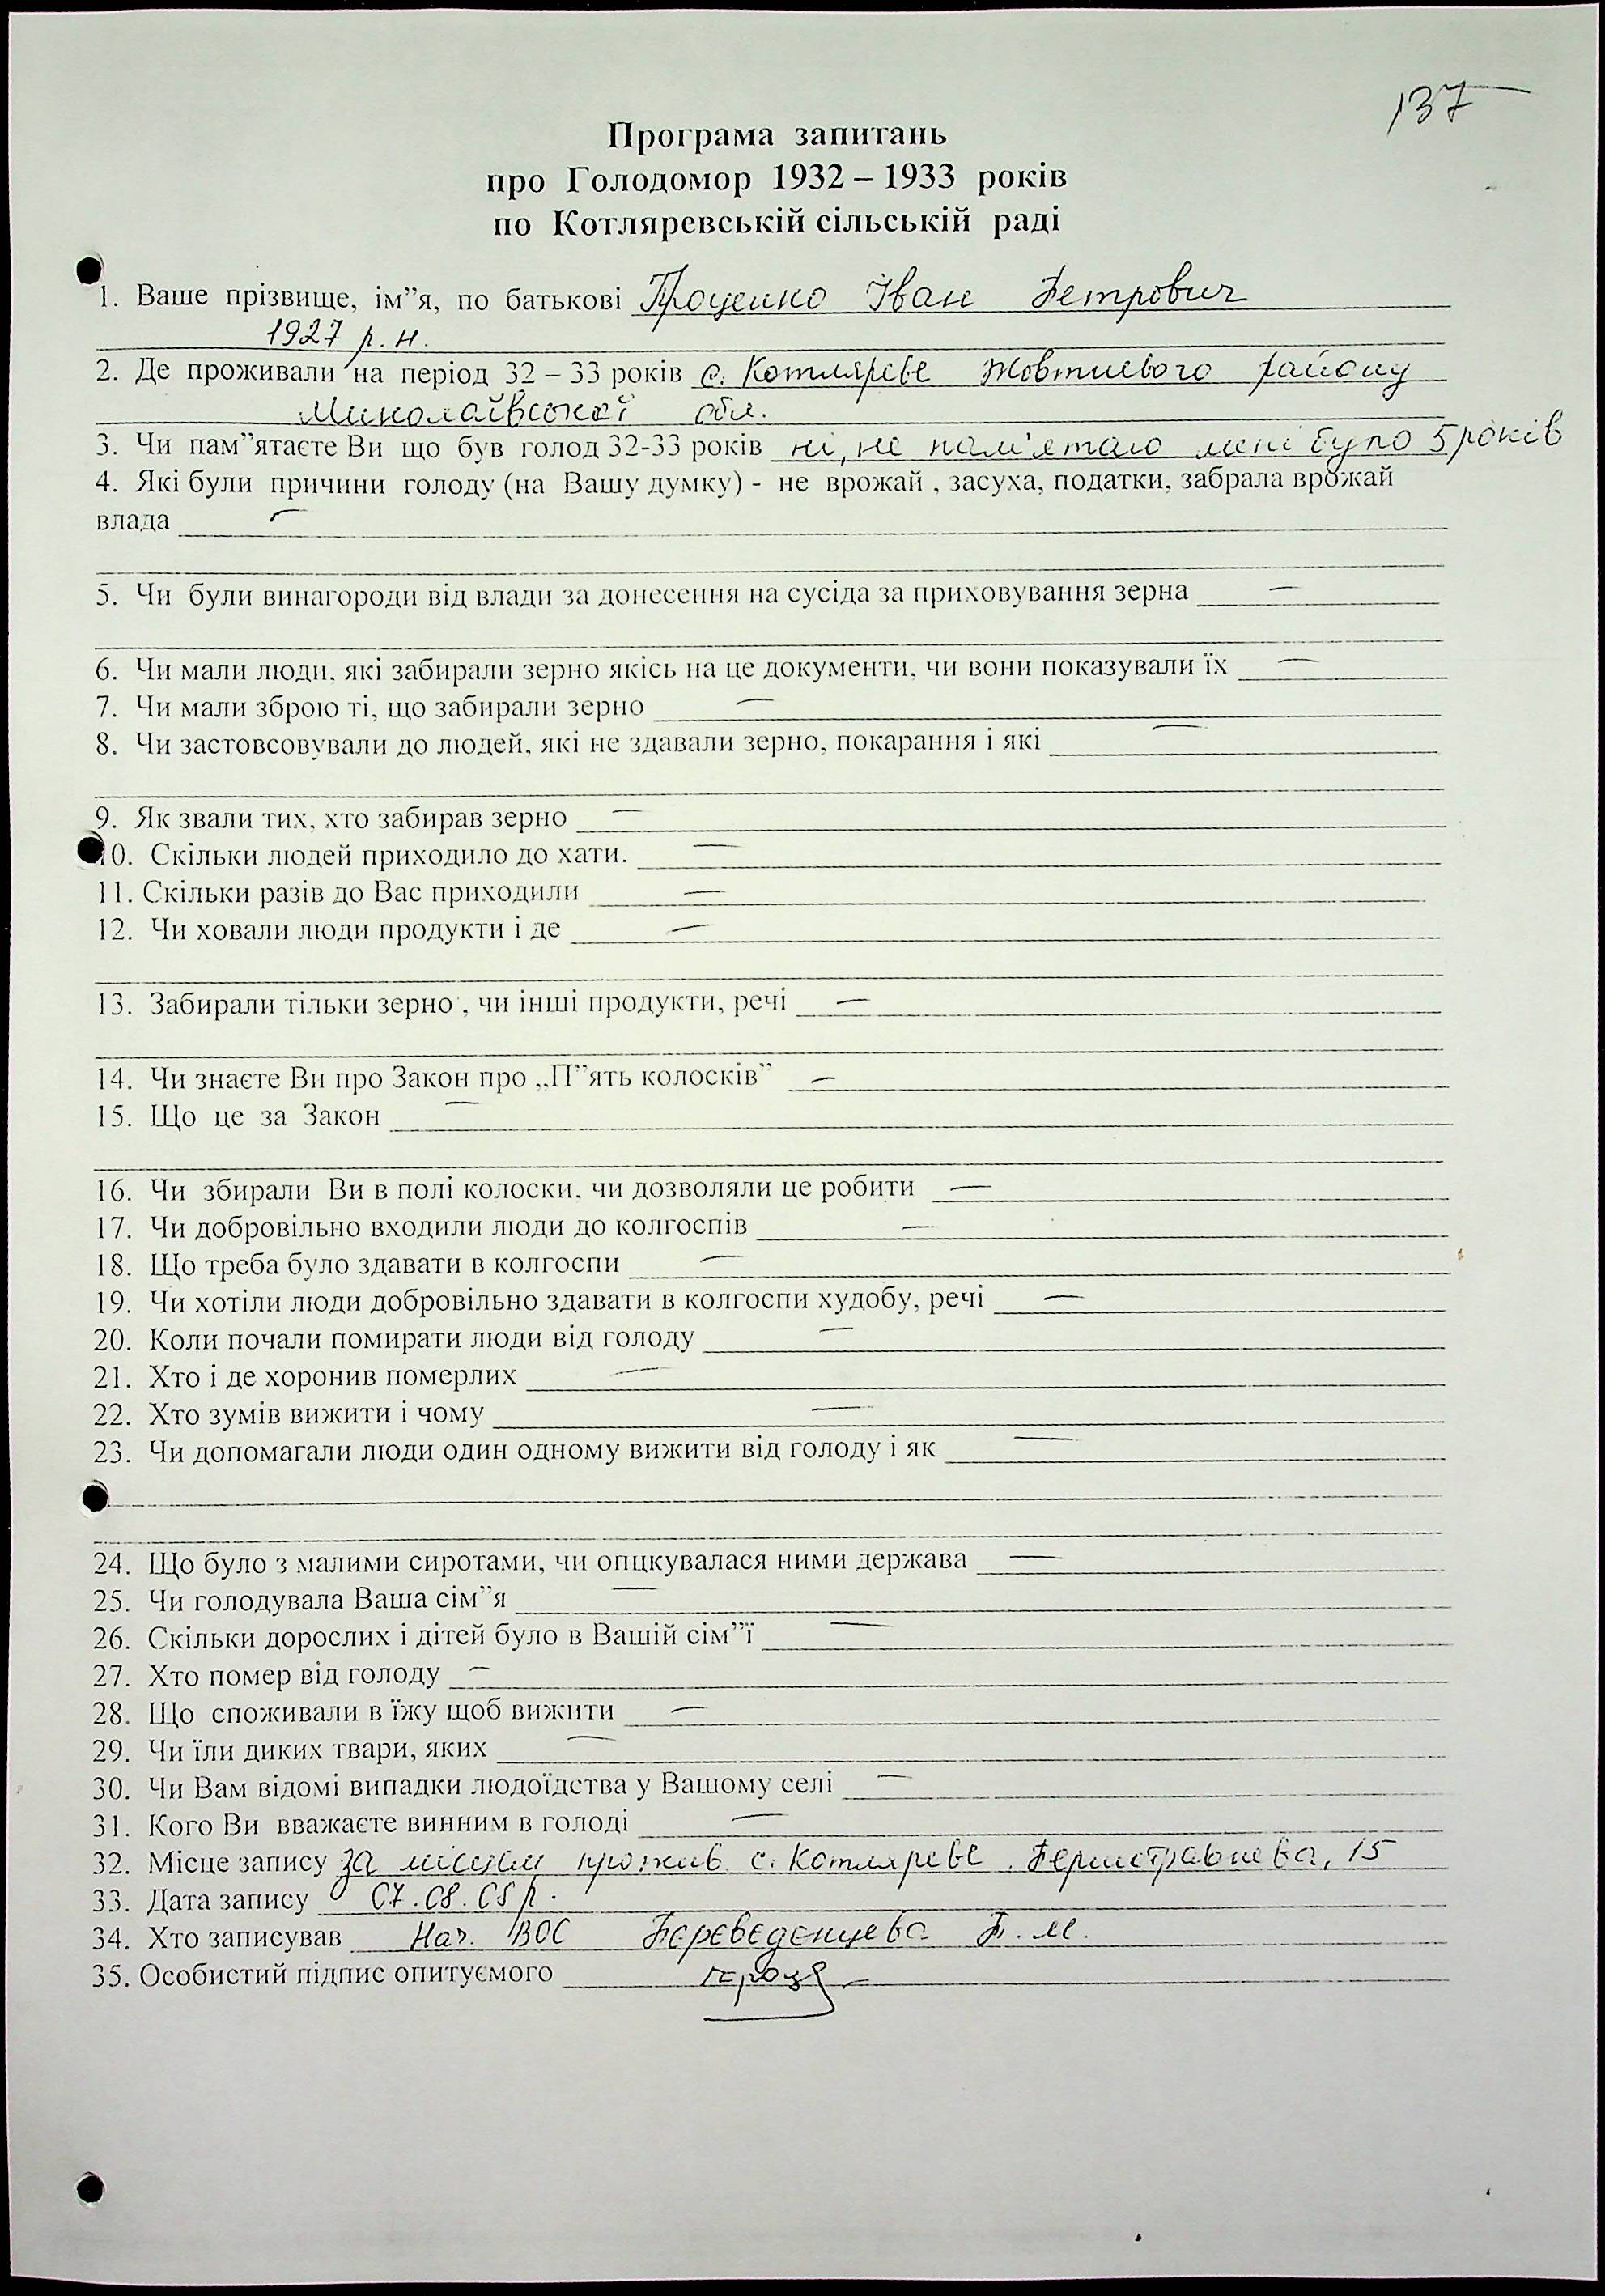 137
Програма запитань
про Голодомор 1932 – 1933 років
по Котляревській сільській раді
1. Ваше прізвище, ім”я, по батькові Проценко Іван Петрович
1927 р. н.
2. Де проживали на період 32 – 33 років с. Котляреве Жовтневого району
Миколаївської обл.
3. Чи пам”ятаєте Ви що був голод 32-33 років ні, не пам'ятаю мені було 5 років
4. Які були причини голоду (на Вашу думку) - не врожай , засуха, податки, забрала врожай
влада –
5. Чи були винагороди від влади за донесення на сусіда за приховування зерна –
6. Чи мали люди, які забирали зерно якісь на це документи, чи вони показували їх –
7. Чи мали зброю ті, що забирали зерно –
8. Чи застовсовували до людей, які не здавали зерно, покарання і які –
9. Як звали тих, хто забирав зерно –
10. Скільки людей приходило до хати. –
11. Скільки разів до Вас приходили –
12. Чи ховали люди продукти і де –
13. Забирали тільки зерно , чи інші продукти, речі –
14. Чи знаєте Ви про Закон про „П”ять колосків” –
15. Що це за Закон –
16. Чи збирали Ви в полі колоски, чи дозволяли це робити –
17. Чи добровільно входили люди до колгоспів –
18. Що треба було здавати в колгоспи –
19. Чи хотіли люди добровільно здавати в колгоспи худобу, речі –
20. Коли почали помирати люди від голоду –
21. Хто і де хоронив померлих –
22. Хто зумів вижити і чому –
23. Чи допомагали люди один одному вижити від голоду і як –
24. Що було з малими сиротами, чи опцкувалася ними держава –
25. Чи голодувала Ваша сім”я –
26. Скільки дорослих і дітей було в Вашій сім”ї –
27. Хто помер від голоду –
28. Що споживали в їжу щоб вижити –
29. Чи їли диких твари, яких –
30. Чи Вам відомі випадки людоїдства у Вашому селі –
31. Кого Ви вважаєте винним в голоді –
32. Місце запису за місцем прожив. с. Котляреве, Першотравнева, 15
33. Дата запису 07.08.08 р.
34. Хто записував Нач. ВОС Переведенцева Т. М.
35. Особистий підпис опитуємого